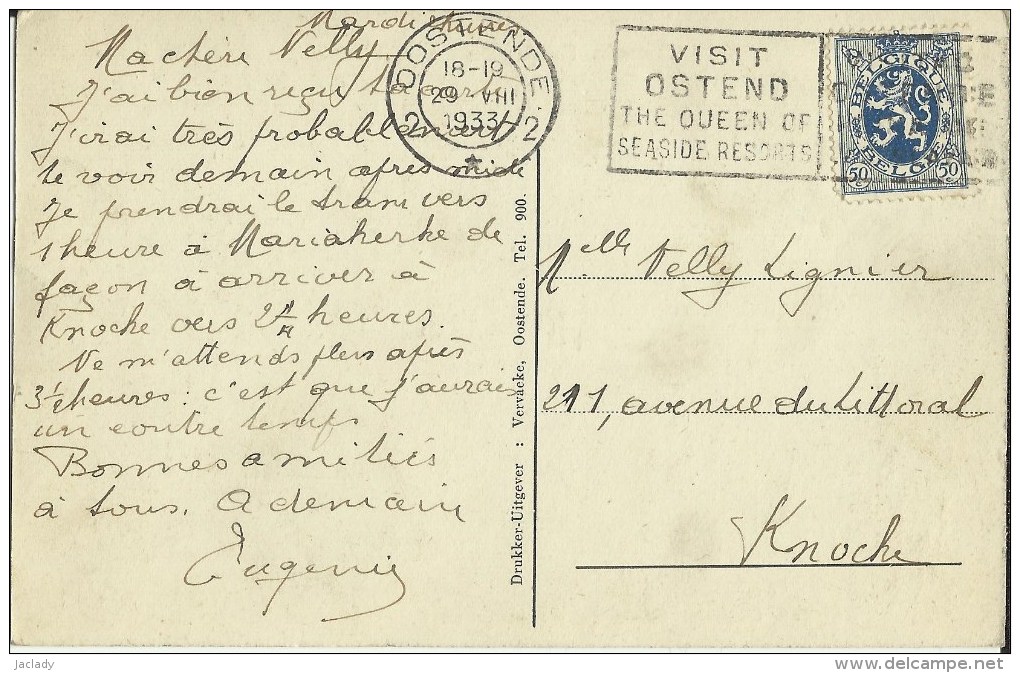 Mardi
Ma chère Nelly
J'ai bien reçu ta carte
J'irai très probablement
te voir demain après midi
Je prendrai le tram vers
1 heure à Mariakerke de
façon à arriver à
Knocke vers 2 heures.
Ne m'attends plus après
3 1/2 heures : c'est que j'aurais
un contre temps
Bonnes amitiés
à tous. A demain
Eugenie
OOSTENDE
18-19
29 VIII
1933
2 2
VISIT
OSTEND
THE QUEEN OF
SEASIDE RESORTS
BELGIQUE
BELGIE
50 50
Drukker-Uitgever : Vervaecke, Oostende. Tel. 900.
Melle Nelly Lignier
211, avenue du Littoral
Knocke
jaclady
www.delcampe.net